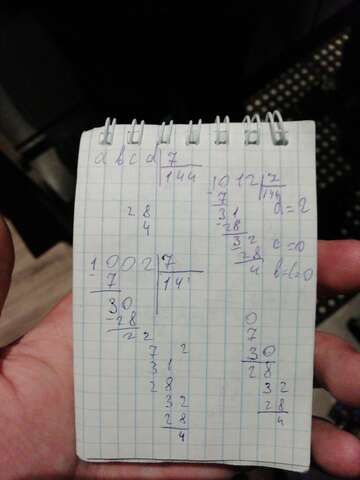 a b c d 7
144
1012 7
- 7 144
28 31 d=2
4 - 28
32 c=0
28
4 b=c=0
1002 7
- 7 14
30
- 28
22
0
7
7 2 30
31 28
28 32
32 28
28 4
4